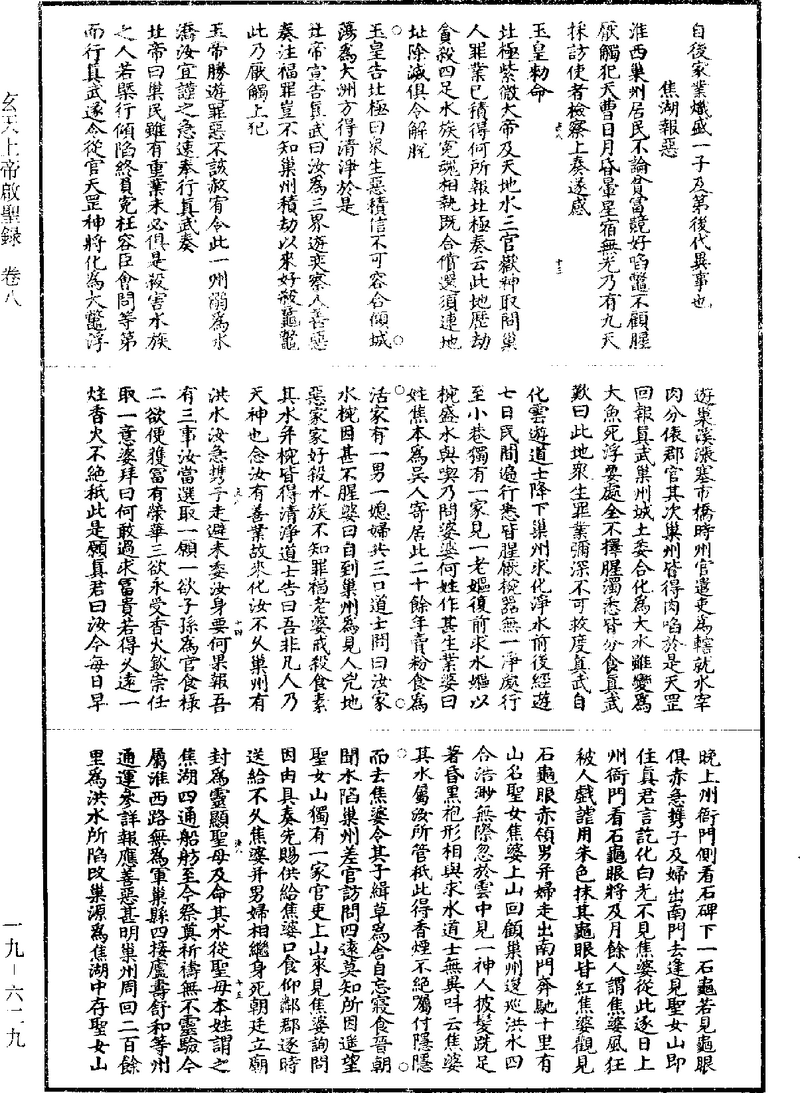 自後家業熾盛一子及第後代異事也
焦湖報惡
淮西巢州居民不論貧富競好啗鼈不顧腥
厭觸犯天曹日月昏暈星宿無光乃有九天
採訪使者檢察上奏遂感
玉皇勅命
北極紫微大帝及天地水三官嶽神取問巢
人罪業已積得何所報北極奏云此地歷劫
食殺四足水族冤魂相執既合償還須連地
址除滅俱令解脫
玉皇告北極曰衆生惡積信不可容合傾城
蕩爲大洲方得清淨於是
北帝宣告真武曰汝爲三界遊奕察人善惡
奏注福罪豈不知巢州積劫以來好殺龜鼈
此乃厭觸上犯
玉帝勝遊罪惡不該赦宥令此一州䧟爲水
㵸汝宜謹之急速奉行真武奏
北帝曰巢民雖有重業未必俱是殺害水族
之人若槩行傾陷終負冤枉容臣會問等第
而行真武遂令從官天罡神將化爲大鼈浮
遊巢溪漲塞市橋時州官遣吏爲轄就水宰
肉分俵郡官其次巢州皆得肉啗於是天罡
回報真武巢州城土委合化爲大水雖變爲
大魚死浮要處全不擇腥濁悉皆分食真武
歎曰此地衆生罪業彌深不可救度真武自
化雲遊道士降下巢州求化淨水前後經遊
七日民間遍行悉皆腥厭椀器無一淨處行
至小巷獨有一家見一老嫗復前求水嫗以
椀盛水與喫乃問婆婆何姓作甚生業婆曰
姓焦本爲吳人寄居此二十餘年賣粉食爲
活家有一男一媳婦共三口道士問曰汝家
水椀因甚不腥婆曰自到巢州爲見人兇地
惡家家好殺水族不知罪福老婆戒殺食素
其水并椀皆得清淨道士告曰吾非凡人乃
天神也念汝有善業故來化汝不久巢州有
洪水汝急携子走避未委汝身要何果報吾
有三事汝當選取一願一欲子孫為官食祿
二欲便獲富有榮華三欲永受香火歆崇任
取一意婆拜曰何敢過求富貴若得久遠一
炷香火不絕秖此是願真君曰汝今每日早
晚上州衙門側看石碑下一石龜若見龜眼
俱赤急携子及婦出南門去逢見聖女山即
住真君言訖化白光不見焦婆從此逐日上
州衙門看石龜眼將及月餘人謂焦婆風狂
被人戲謔用朱色抹其龜眼皆紅焦婆觀見
石龜眼赤領男并婦走出南門奔馳十里有
山名聖女焦婆上山回顧巢州逡巡洪水四
合浩渺無際忽於雲中見一神人披髮跣足
著昏黑袍形相與求水道士無異呌云焦婆
其水屬汝所管秖此得香煙不絕囑付隱隱
而去焦婆令其子緝草爲舍自忘寢食晉朝
聞水陷巢州差官訪問四遠莫知所因遙望
聖女山獨有一家官吏上山來見焦婆詢問
因由具奏先賜供給焦婆口食仰鄰郡逐時
送給不久焦婆并男婦相繼身死朝廷立廟
封爲靈顯聖母及命其水從聖母本姓謂之
焦湖四通船舫至今祭奠祈禱無不靈驗今
屬淮西路無爲軍巢縣四接廬壽舒和等州
通運參詳報應善惡甚明巢州周回二百餘
里爲洪水所陷改巢源爲焦湖中存聖女山
玄天上帝啟聖録　卷八
一九－六二九
十三
十四
十五